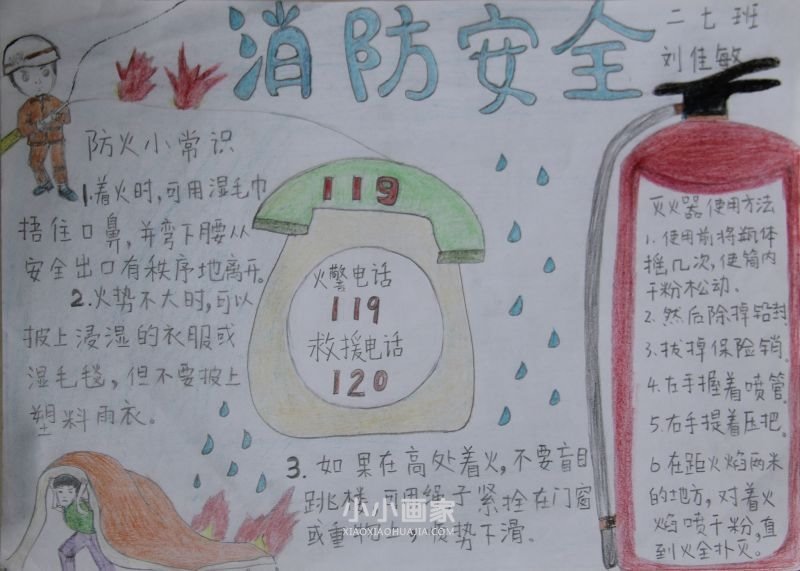 消防安全
二七班
刘佳敏
防火小常识
1.着火时,可用湿毛巾
捂住口鼻,并弯下腰从
安全出口有秩序地离开。
2.火势不大时,可以
披上浸湿的衣服或
湿毛毯,但不要披上
塑料雨衣。
119
火警电话
119
救援电话
120
3.如果在高处着火,不要盲目
跳楼,可用绳子紧拴在门窗
或重 势下滑。
小小画家
XIAOXIAOHUAJIA.COM
灭火器使用方法
1.使用前将瓶体
摇几次,使筒内
干粉松动.
2.然后除掉铅封
3.拔掉保险销.
4.左手握着喷管.
5.右手提着压把.
6在距火焰两米
的地方,对着火
焰喷干粉,直
到火全扑灭。